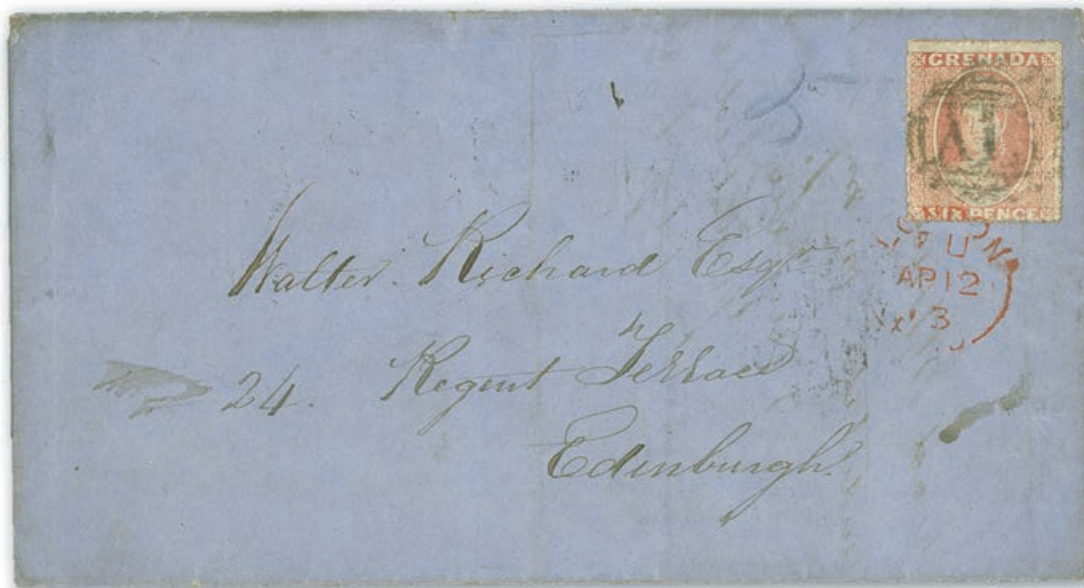 GRENADA
SIX PENCE
LONDON
AP 12
Walter Richard Esqr
24. Regent Terrace
Edinburgh